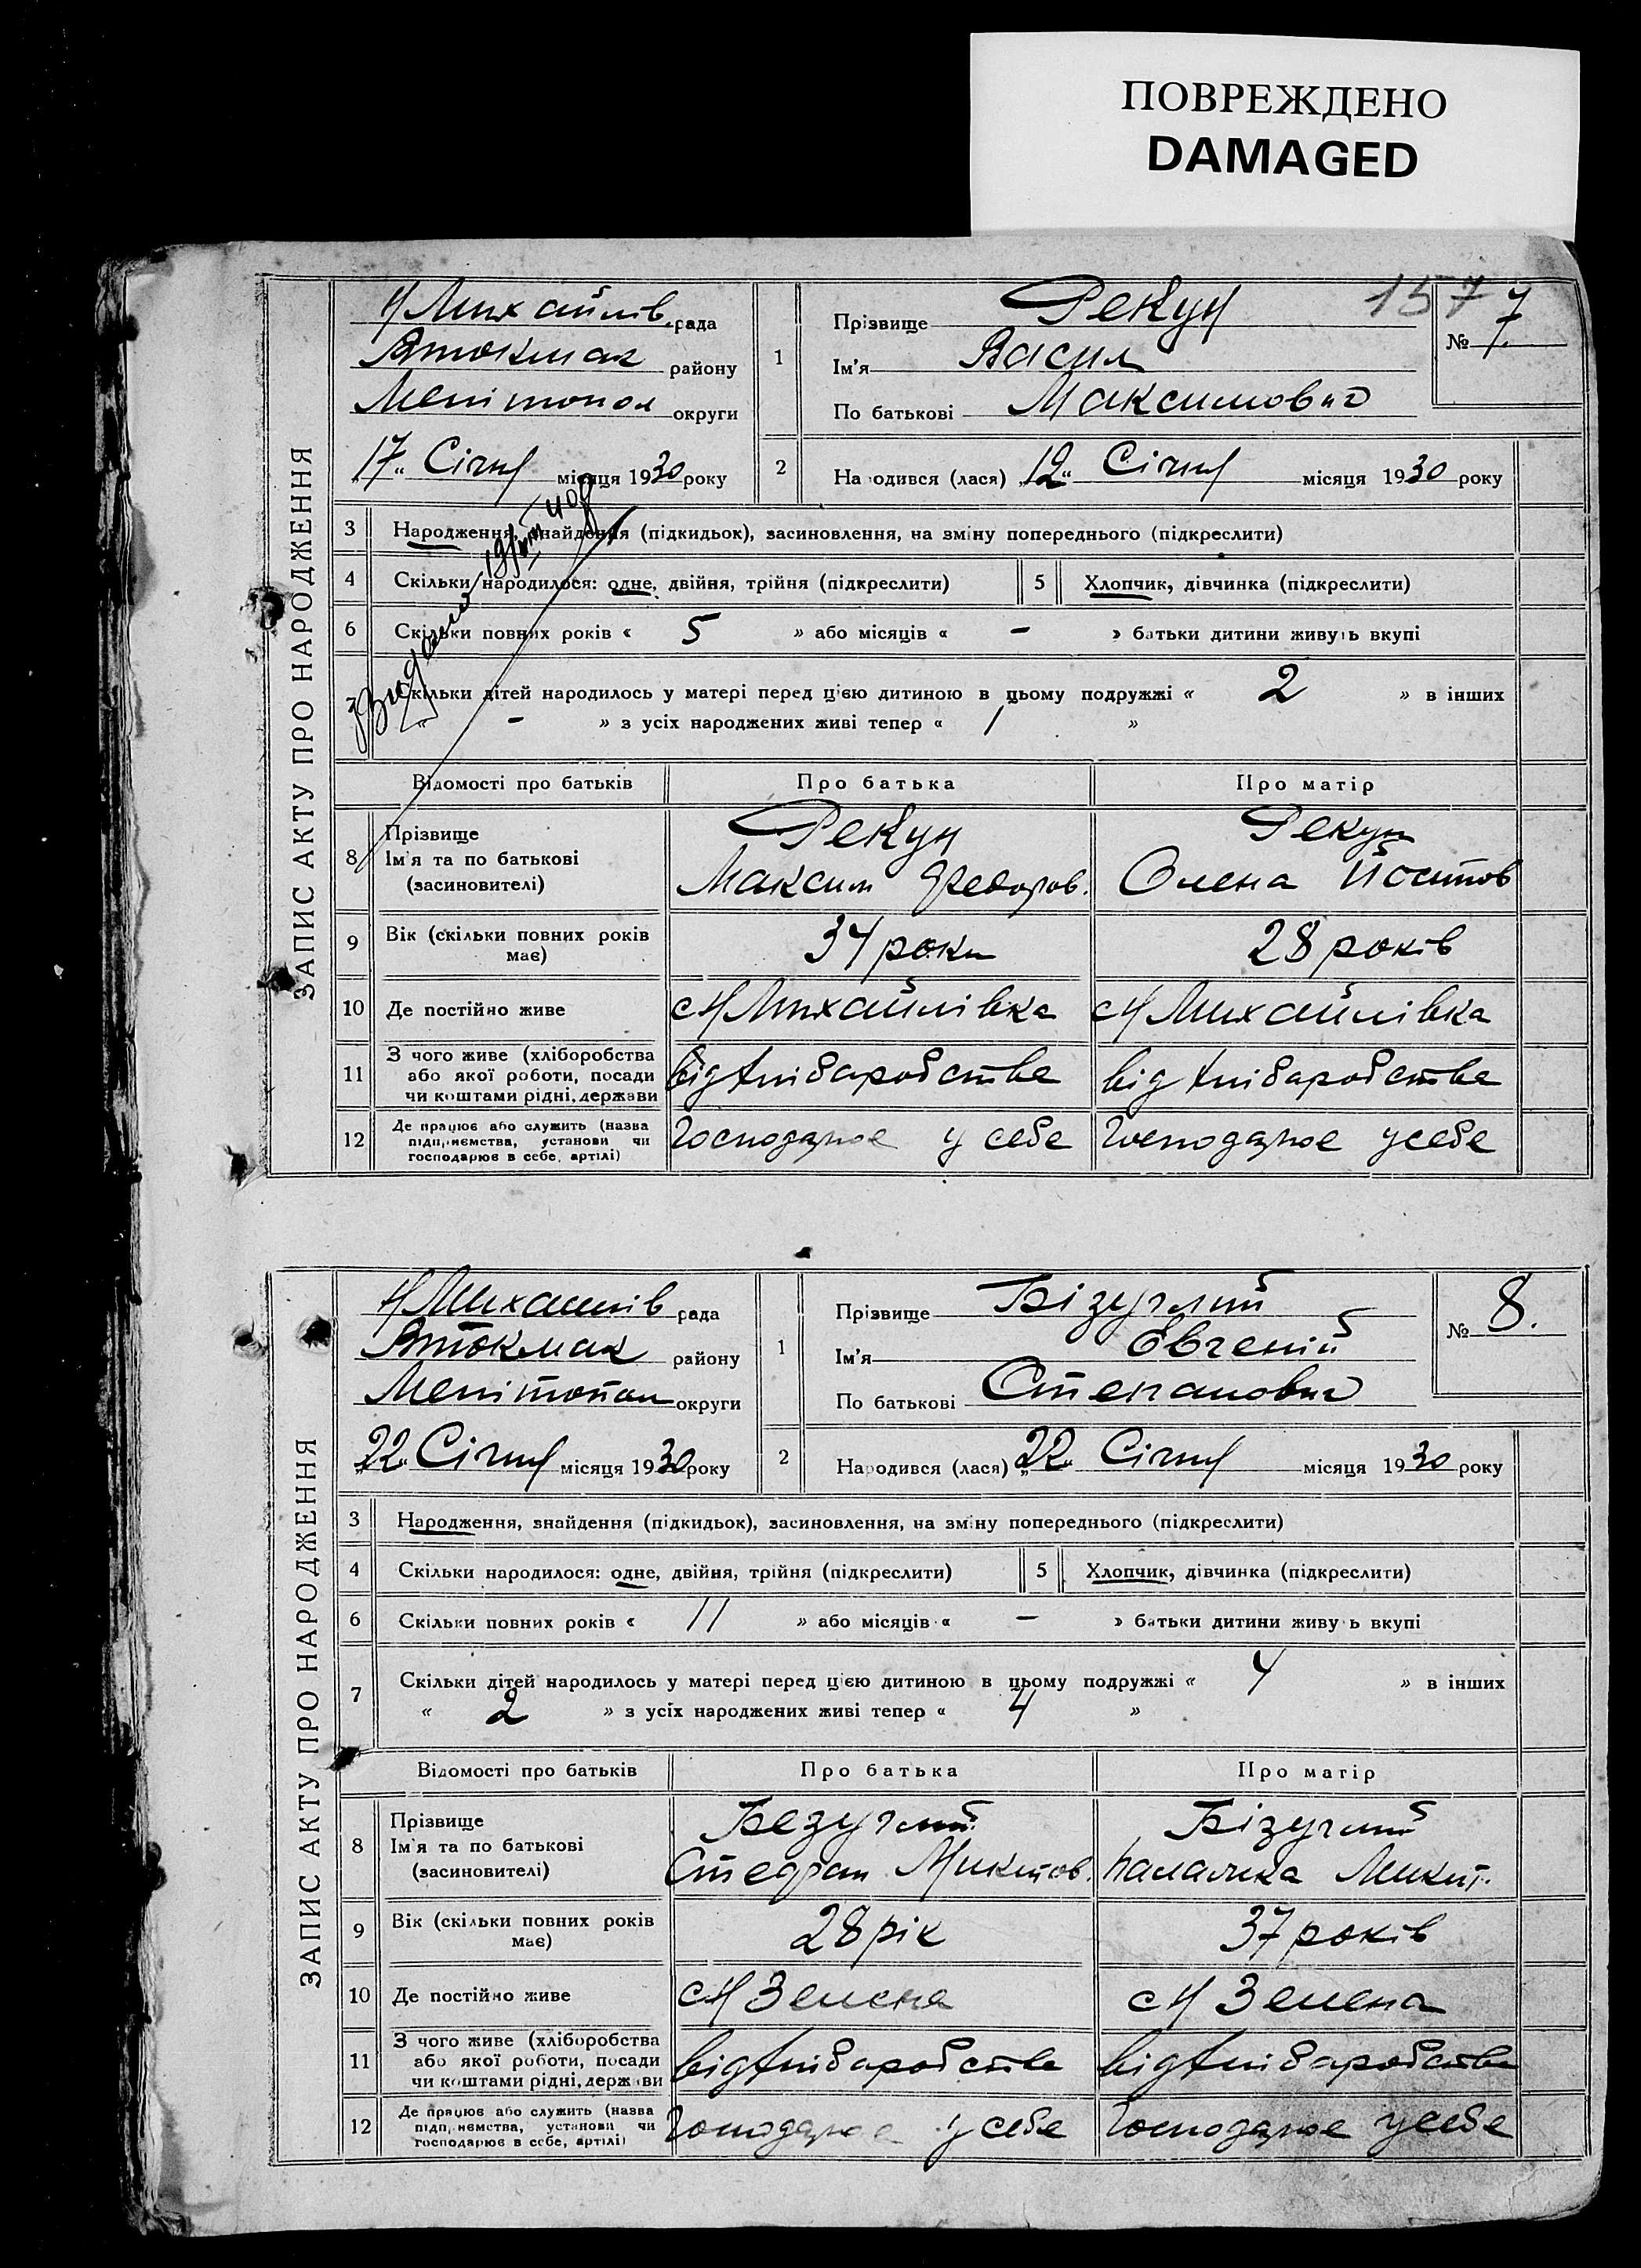 ПОВРЕЖДЕНО
DAMAGED
157
ЗАПИС АКТУ ПРО НАРОДЖЕННЯ
Н Михайлів. рада
Втокмак району
Мелітопол округи
17 Січня місяця 1930 року
1 Прізвище Рекун
Ім'я Васил
По батькові Максимович
№ 7.
2 Народився (лася) „12" Січня місяця 1930 року
3 Народження, знайдення (підкидьок), засиновлення, на зміну попереднього (підкреслити)
4 Скільки народилося: одне, двійня, трійня (підкреслити) 5 Хлопчик, дівчинка (підкреслити)
6 Скільки повних років « 5 » або місяців « – » батьки дитини живуть вкупі
7 Скільки дітей народилось у матері перед цією дитиною в цьому подружжі « 2 » в інших
« – » з усіх народжених живі тепер « 1 »
Відомості про батьків Про батька Про матір
8 Прізвище
Ім'я та по батькові
(засиновителі)
Рекун
Максим Федоров.
Рекун
Олена Йосипов
9 Вік (скільки повних років має) 34 роки 28 років
10 Де постійно живе с Н Михайлівка с Н Михайлівка
11 З чого живе (хліборобства
або якої роботи, посади
чи коштами рідні, держави
від хліборобства від хліборобства
12 Де працює або служить (назва
підприємства, установи чи
господарює в себе, артілі)
Господарює у себе Господарює у себе
ЗАПИС АКТУ ПРО НАРОДЖЕННЯ
Н Михайлів рада
Втокмак району
Мелітопол округи
„22" Січня місяця 1930 року
1 Прізвище Бізуглий
Ім'я Євгеній
По батькові Степанович
№ 8.
2 Народився (лася) „22" Січня місяця 1930 року
3 Народження, знайдення (підкидьок), засиновлення, на зміну попереднього (підкреслити)
4 Скільки народилося: одне, двійня, трійня (підкреслити) 5 Хлопчик, дівчинка (підкреслити)
6 Скільки повних років « 11 » або місяців « – » батьки дитини живуть вкупі
7 Скільки дітей народилось у матері перед цією дитиною в цьому подружжі « 4 » в інших
« 2 » з усіх народжених живі тепер « 4 »
Відомості про батьків Про батька Про матір
8 Прізвище
Ім'я та по батькові
(засиновителі)
Безуглий
Стефан Микитов.
Бізуглий
Микит.
9 Вік (скільки повних років має) 28 рік 37 років
10 Де постійно живе с Н Зелена с Н Зелена
11 З чого живе (хліборобства
або якої роботи, посади
чи коштами рідні, держави
від хліборобства від хліборобства
12 Де працює або служить (назва
підприємства, установи чи
господарює в себе, артілі)
Господарює у себе Господарює у себе